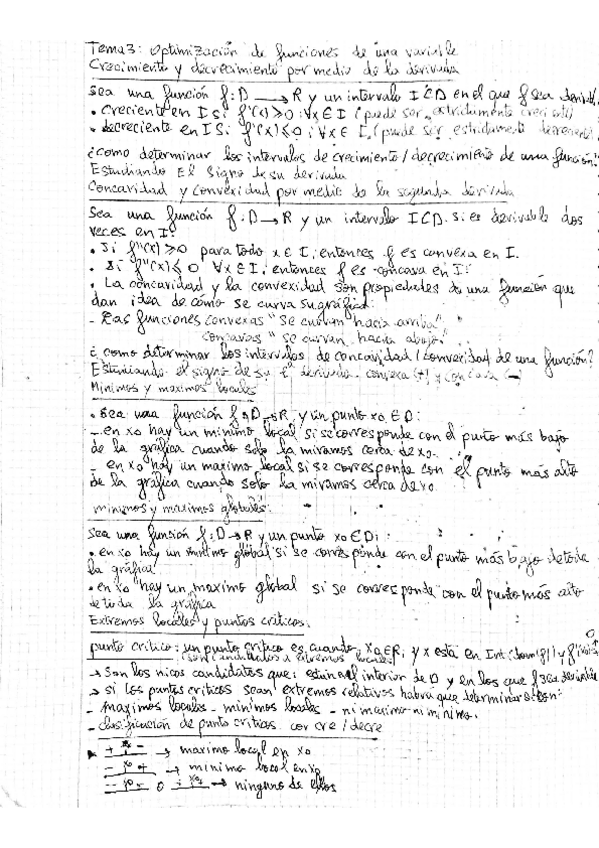 Tema 3: Optimización de funciones de una variable
Crecimiento y decrecimiento por medio de la derivada
Sea una función f: D → R y un intervalo I ⊂ D en el que f sea derivable
• creciente en I si f'(x) ≥ 0 ; ∀x ∈ I (puede ser estrictamente creciente)
• decreciente en I si f'(x) ≤ 0 ; ∀x ∈ I. (puede ser estrictamente decreciente)
¿como determinar los intervalos de crecimiento / decrecimiento de una función?
Estudiando El signo de su derivada
Concavidad y convexidad por medio de la segunda derivada
Sea una función f: D → R y un intervalo I ⊂ D. si es derivable dos
veces en I:
• Si f''(x) ≥ 0 para todo x ∈ I, entonces f es convexa en I.
• Si f''(x) ≤ 0 ∀x ∈ I, entonces f es concava en I.
• La concavidad y la convexidad son propiedades de una función que
dan idea de cómo se curva su gráfica:
- Las funciones convexas "se curvan hacia arriba"
concavas "se curvan hacia abajo"
¿como determinar los intervalos de concavidad / convexidad de una función?
Estudiando el signo de su 2ª derivada. convexa (+) y concava (-)
Minimos y maximos locales
• Sea una función f: D → R, y un punto x0 ∈ D:
- en x0 hay un minimo local si se corresponde con el punto más bajo
de la gráfica cuando solo la miramos cerca de x0.
- en x0 hay un maximo local si se corresponde con el punto más alto
de la gráfica cuando solo la miramos cerca de x0.
minimos y maximos globales:
Sea una funsión f: D → R y un punto x0 ∈ D:
• en x0 hay un minimo global si se corresponde con el punto más bajo de toda
la gráfica
• en x0 hay un maximo global si se corresponde con el punto más alto
de toda la gráfica
Extremos locales y puntos criticos:
punto critico: un punto critico es cuando x0 ∈ R, y x está en Int (dom(f)) y f'(x0)=0
(son candidatos a extremos locales)
→ Son los nicos candidatos que están el interior de D y en los que f sea derivable
→ si los puntos criticos sean extremos relativos habrá que determinar si son:
- maximos locales - minimos locales - ni maximo ni minimo.
- clasificación de punto criticos cor cre / decre
+ x0 - → maximo local en x0
- x0 + → minimo local en x0
- x0 - o + x0 + → ninguno de ellos